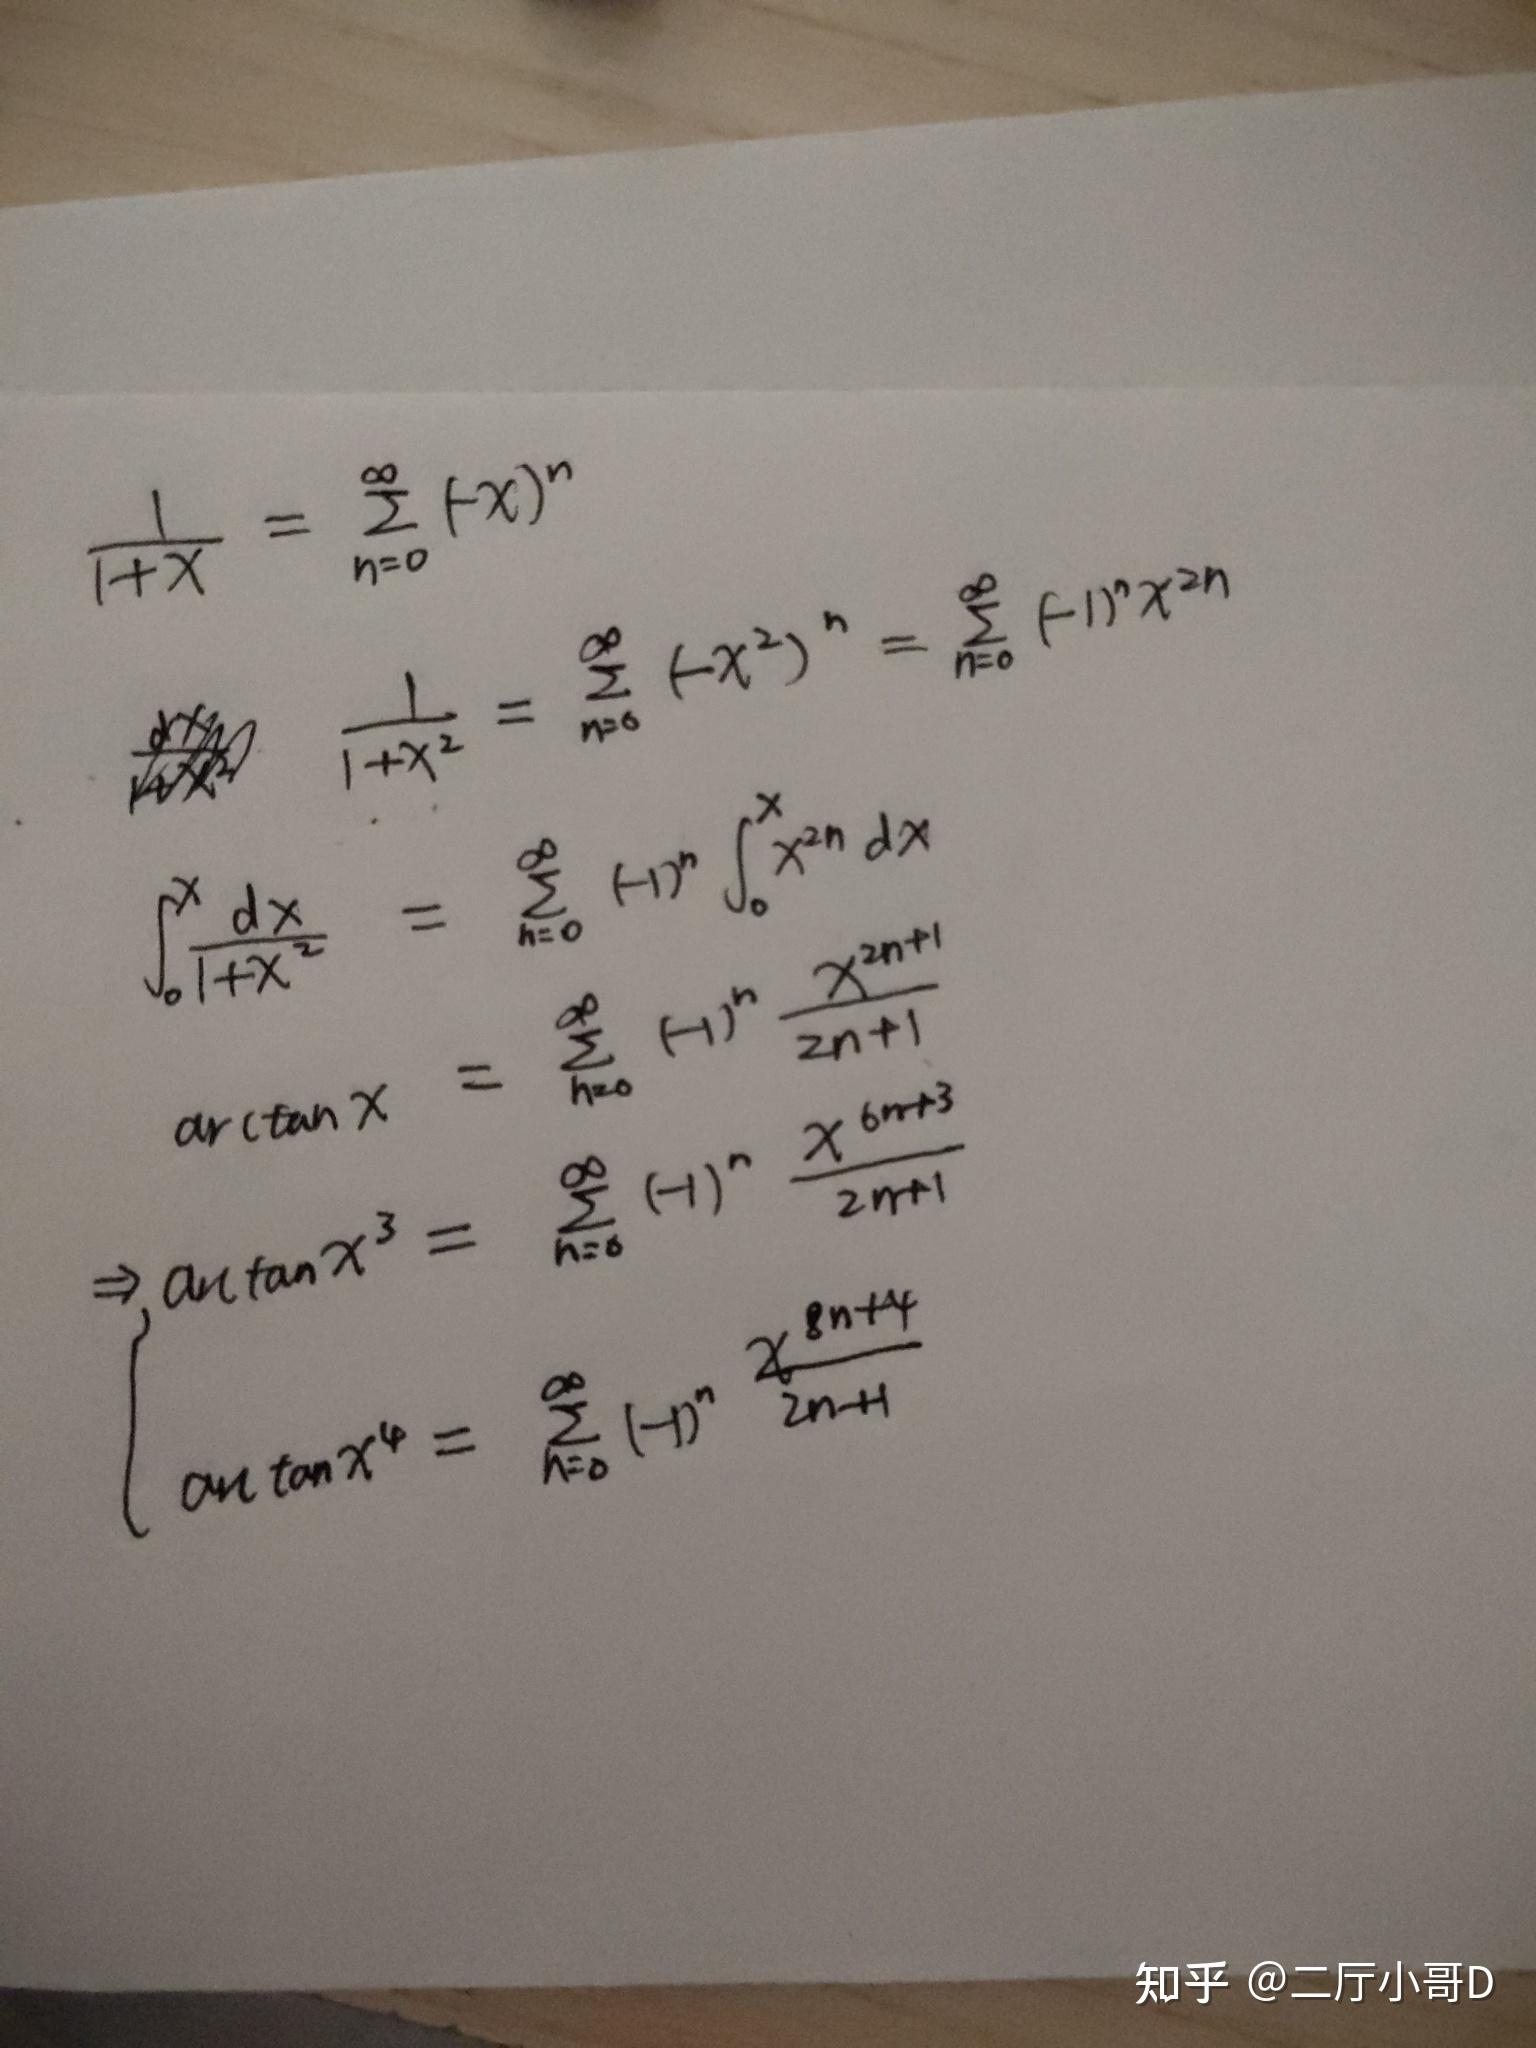 1/(1+x) = ∑_{n=0}^{∞} (-x)^n
1/(1+x²) = ∑_{n=0}^{∞} (-x²)^n = ∑_{n=0}^{∞} (-1)^n x^{2n}
∫_0^x dx/(1+x²) = ∑_{n=0}^{∞} (-1)^n ∫_0^x x^{2n} dx
arctan x = ∑_{n=0}^{∞} (-1)^n x^{2n+1}/(2n+1)
⇒ arctan x³ = ∑_{n=0}^{∞} (-1)^n x^{6n+3}/(2n+1)
arctan x⁴ = ∑_{n=0}^{∞} (-1)^n x^{8n+4}/(2n+1)
知乎 @二厅小哥D